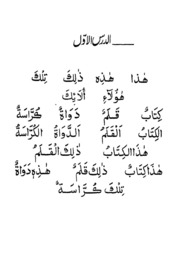 الدرس الاول
هٰذا هٰذِهِ ذٰلِكَ تِلْكَ
هٰؤُلَآءِ اُلَابِٕكَ
كِتَابٌ قَلَمٌ دَوَاةٌ كُرَّاسَةٌ
اَلْكِتَابُ اَلْقَلَمُ اَلدَّوَاةُ اَلْكُرَّاسَةُ
هٰذَا الْكِتَابُ ذٰلِكَ الْقَلَمُ
هٰذَا كِتَابٌ ذٰلِكَ قَلَمٌ هٰذِهِ دَوَاةٌ
تِلْكَ كُرَّاسَةٌ